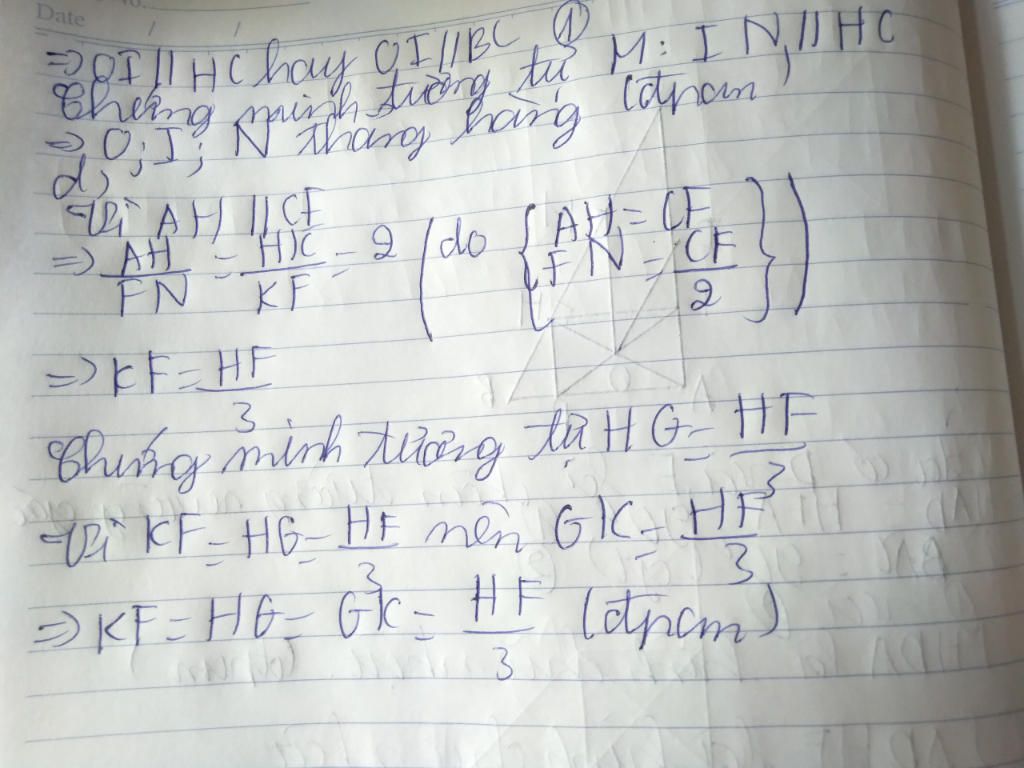 Date / /
=> OI // HC hay OI // BC ①
Chứng minh tương tự M: I N // HC
=> O; I; N thẳng hàng (đpcm)
d,
- Vì AH // CF
=> AH/FN = HK/KF = 2 (do { AH = CF
FN = CF/2 })
=> KF = HF/3
Chứng minh tương tự HG = HF/3
- Vì KF = HG = HF/3 nên GK = HF/3
=> KF = HG = GK = HF/3 (đpcm)